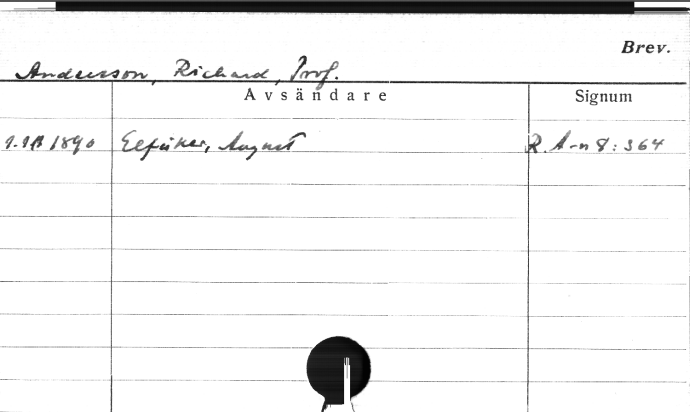 Brev.
Andersson, Richard, Prof.
Avsändare Signum
1890 August R. A-n 8:364